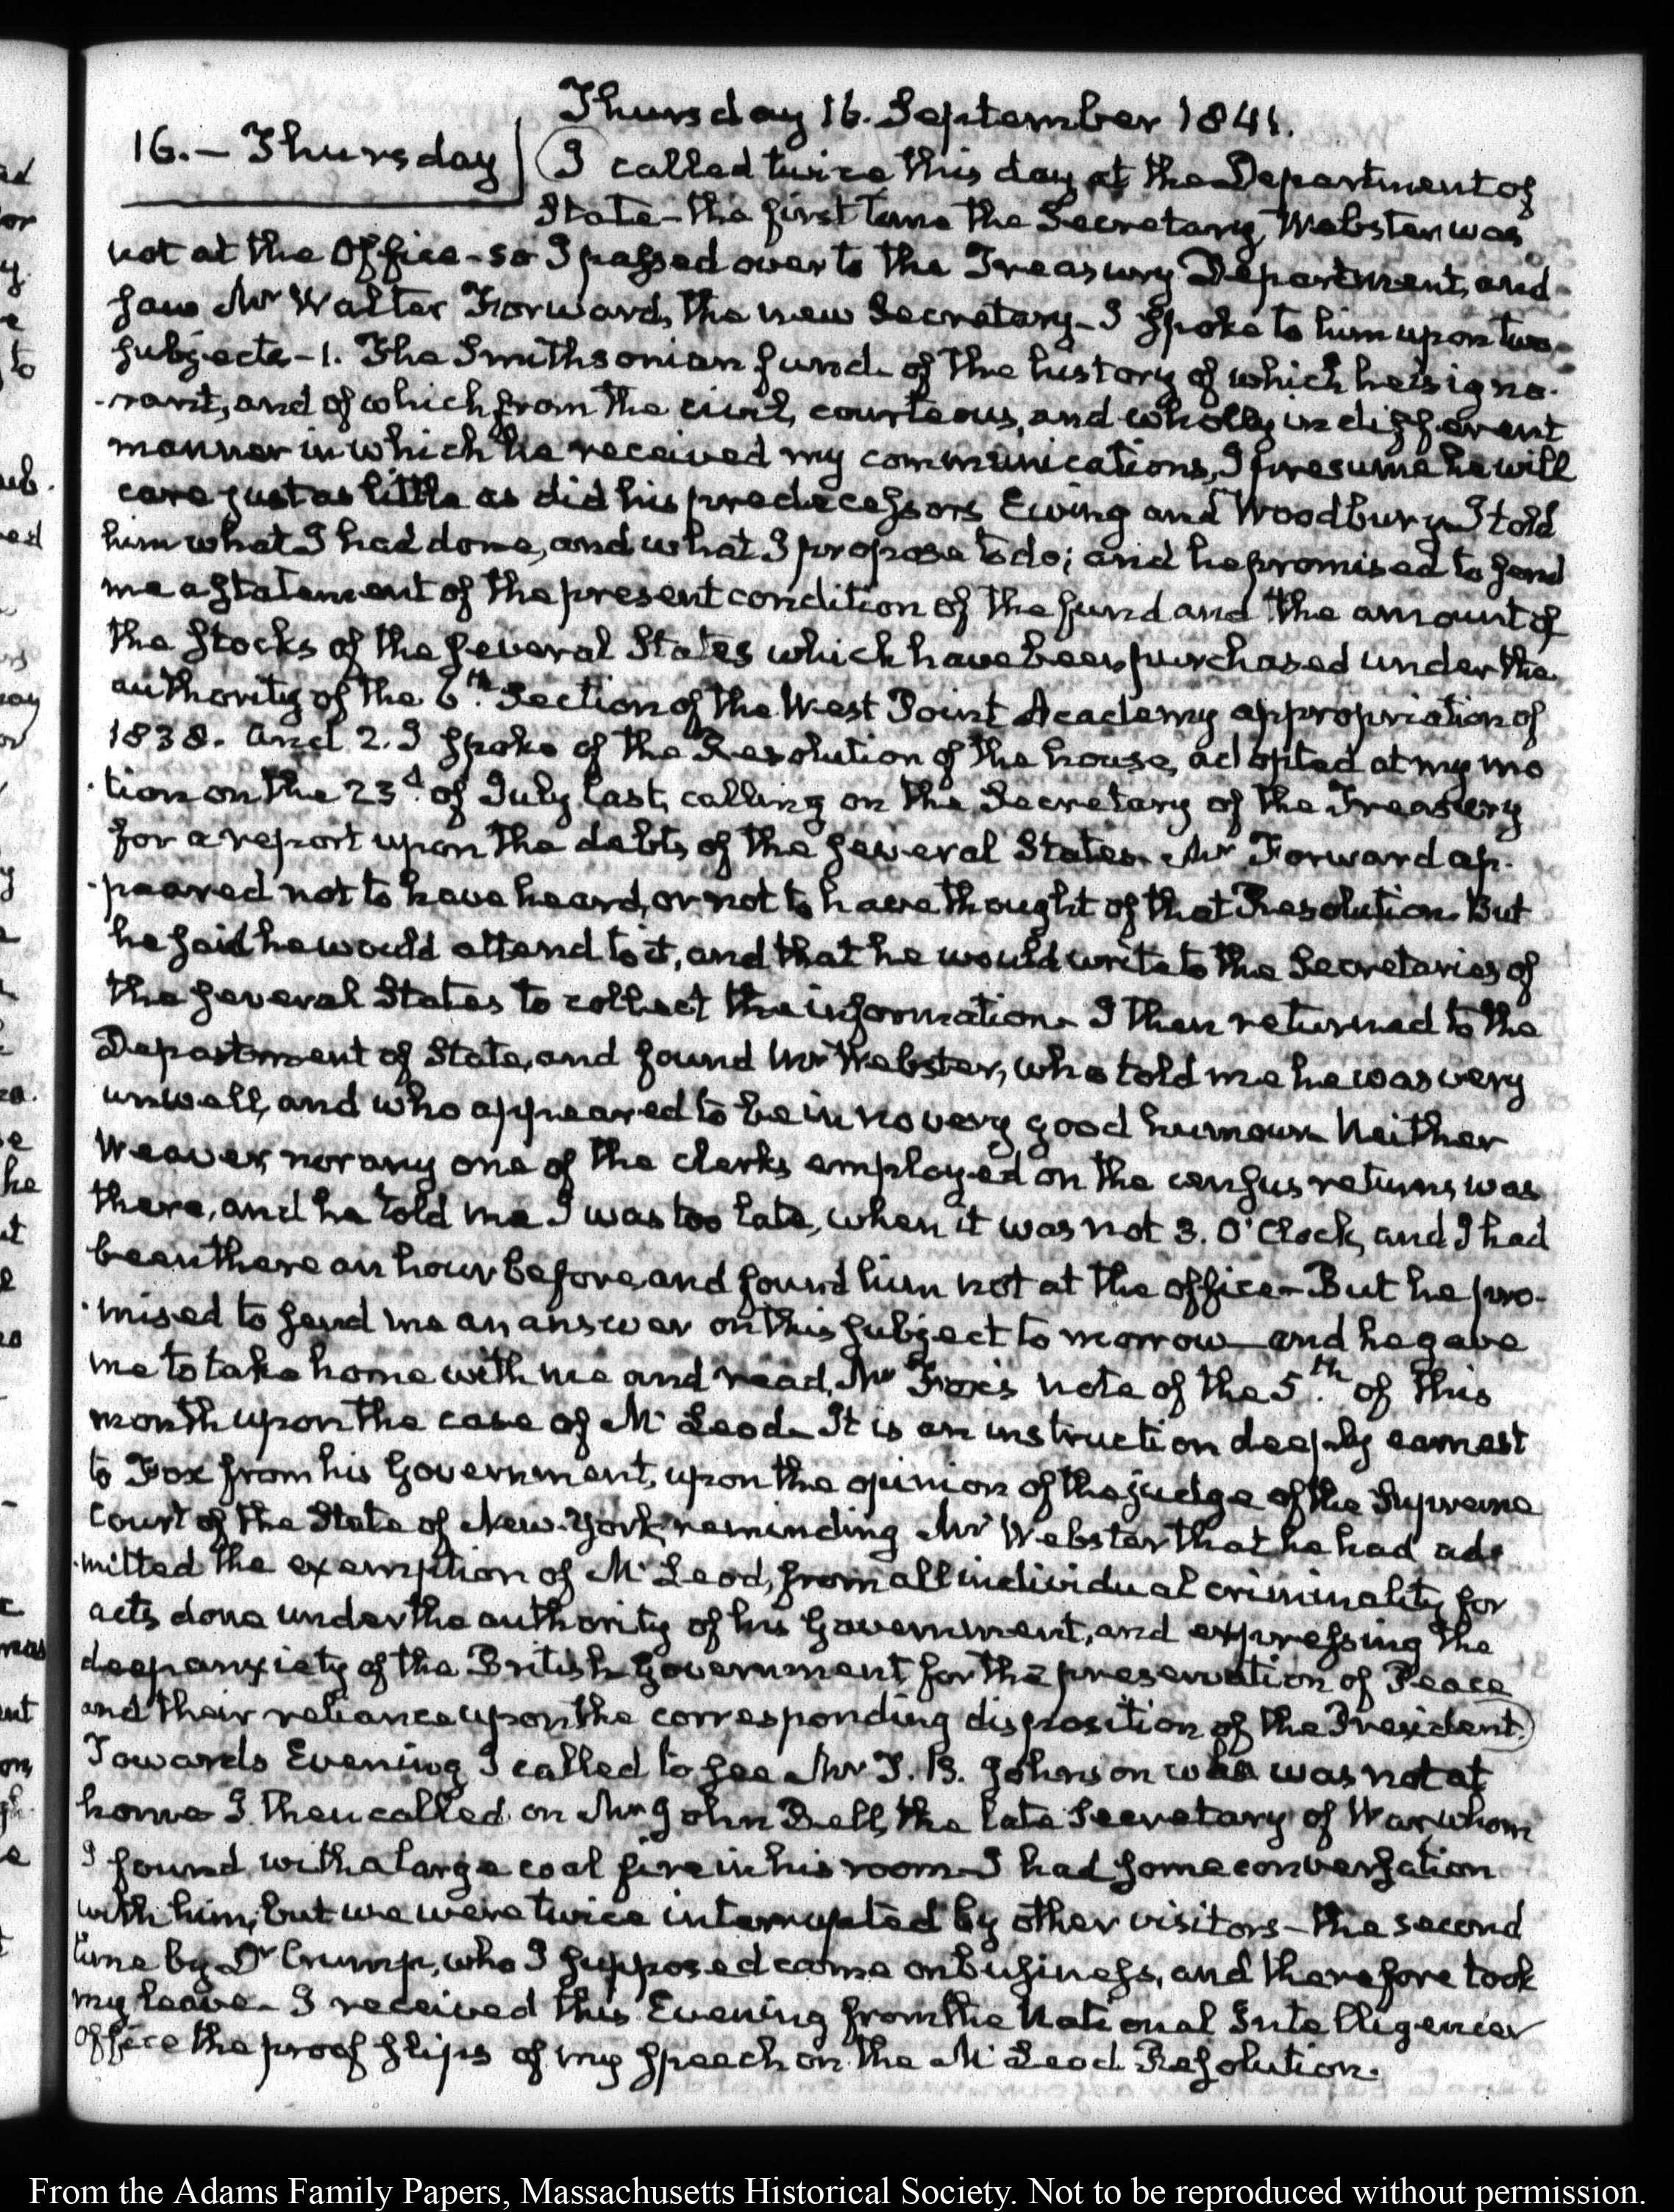 Thursday 16. September 1841.
16. — Thursday
I called twice this day at the Department of
State — the first time the Secretary, Webster was
not at the Office — so I passed over to the Treasury Department, and
saw Mr Walter Forward, the new Secretary — I spoke to him upon two
subjects — 1. The Smithsonian fund of the history of which he is igno-
-rant, and of which from the civil, courteous, and wholly indifferent
manner in which he received my communications, I presume he will
care just as little as did his predecessors Ewing and Woodbury. I told
him what I had done, and what I propose to do; and he promised to send
me a statement of the present condition of the fund and the amount of
the stocks of the several States which have been purchased under the
authority of the 6th. Section of the West Point Academy appropriation of
1838. and 2. I spoke of the Resolution of the house, adopted at my mo
-tion on the 23d. of July last, calling on the Secretary of the Treasury
for a report upon the debts of the several States. Mr Forward ap-
-peared not to have heard, or not to have thought of that Resolution. But
he said he would attend to it, and that he would write to the Secretaries of
the several States to collect the information. I then returned to the
Department of State, and found Mr Webster, who told me he was very
unwell, and who appeared to be in no very good humour. Neither
Weaver nor any one of the clerks employed on the census returns was
there, and he told me I was too late, when it was not 3. O'Clock, and I had
been there an hour before, and found him not at the office — But he pro-
-mised to send me an answer on this subject to morrow — and he gave
me to take home with me and read, Mr Fox's note of the 5th. of this
month upon the case of McLeod. It is an instruction deeply earnest
to Fox from his Government, upon the opinion of the judge of the Supreme
Court of the State of New-York, reminding Mr Webster that he had ad-
-mitted the exemption of McLeod, from all individual criminality for
acts done under the authority of his Government, and expressing the
deep anxiety of the British Government for the preservation of Peace
and their reliance upon the corresponding disposition of the President.
Towards Evening I called to see Mr T. B. Johnson who was not at
home. I then called on Mr John Bell, the late Secretary of War, whom
I found with a large coal fire in his room. I had some conversation
with him, but we were twice interrupted by other visitors — the second
time by Dr Crump, who I supposed came on business, and therefore took
my leave. I received this Evening from the National Intelligencer
Office the proof slips of my speech on the McLeod Resolution.
From the Adams Family Papers, Massachusetts Historical Society. Not to be reproduced without permission.